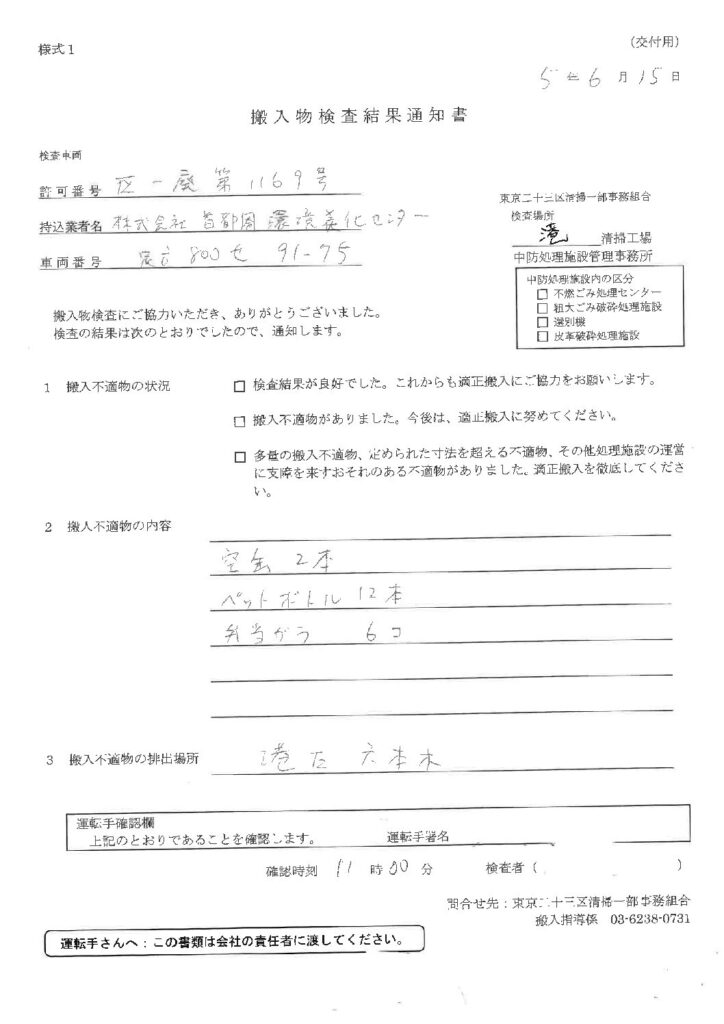 様式1
（交付用）
5年6月15日
搬入物検査結果通知書
検査車両
許可番号 区一廃第1169号
東京二十三区清掃一部事務組合
持込業者名 株式会社 首都圏環境美化センター
検査場所
港 清掃工場
車両番号 800せ 91-75
中防処理施設管理事務所
中防処理施設内の区分
□ 不燃ごみ処理センター
□ 粗大ごみ破砕処理施設
□ 選別機
□ 皮革破砕処理施設
搬入物検査にご協力いただき、ありがとうございました。
検査の結果は次のとおりでしたので、通知します。
1 搬入不適物の状況
□ 検査結果が良好でした。これからも適正搬入にご協力をお願いします。
□ 搬入不適物がありました。今後は、適正搬入に努めてください。
□ 多量の搬入不適物、定められた寸法を超える不適物、その他処理施設の運営
に支障を来すおそれのある不適物がありました。適正搬入を徹底してくださ
い。
2 搬入不適物の内容
空缶 2本
ペットボトル 12本
弁当がら 6コ
3 搬入不適物の排出場所 港区 六本木
運転手確認欄
上記のとおりであることを確認します。 運転手署名
確認時刻 11時00分 検査者（ ）
問合せ先：東京二十三区清掃一部事務組合
搬入指導係 03-6238-0731
運転手さんへ：この書類は会社の責任者に渡してください。